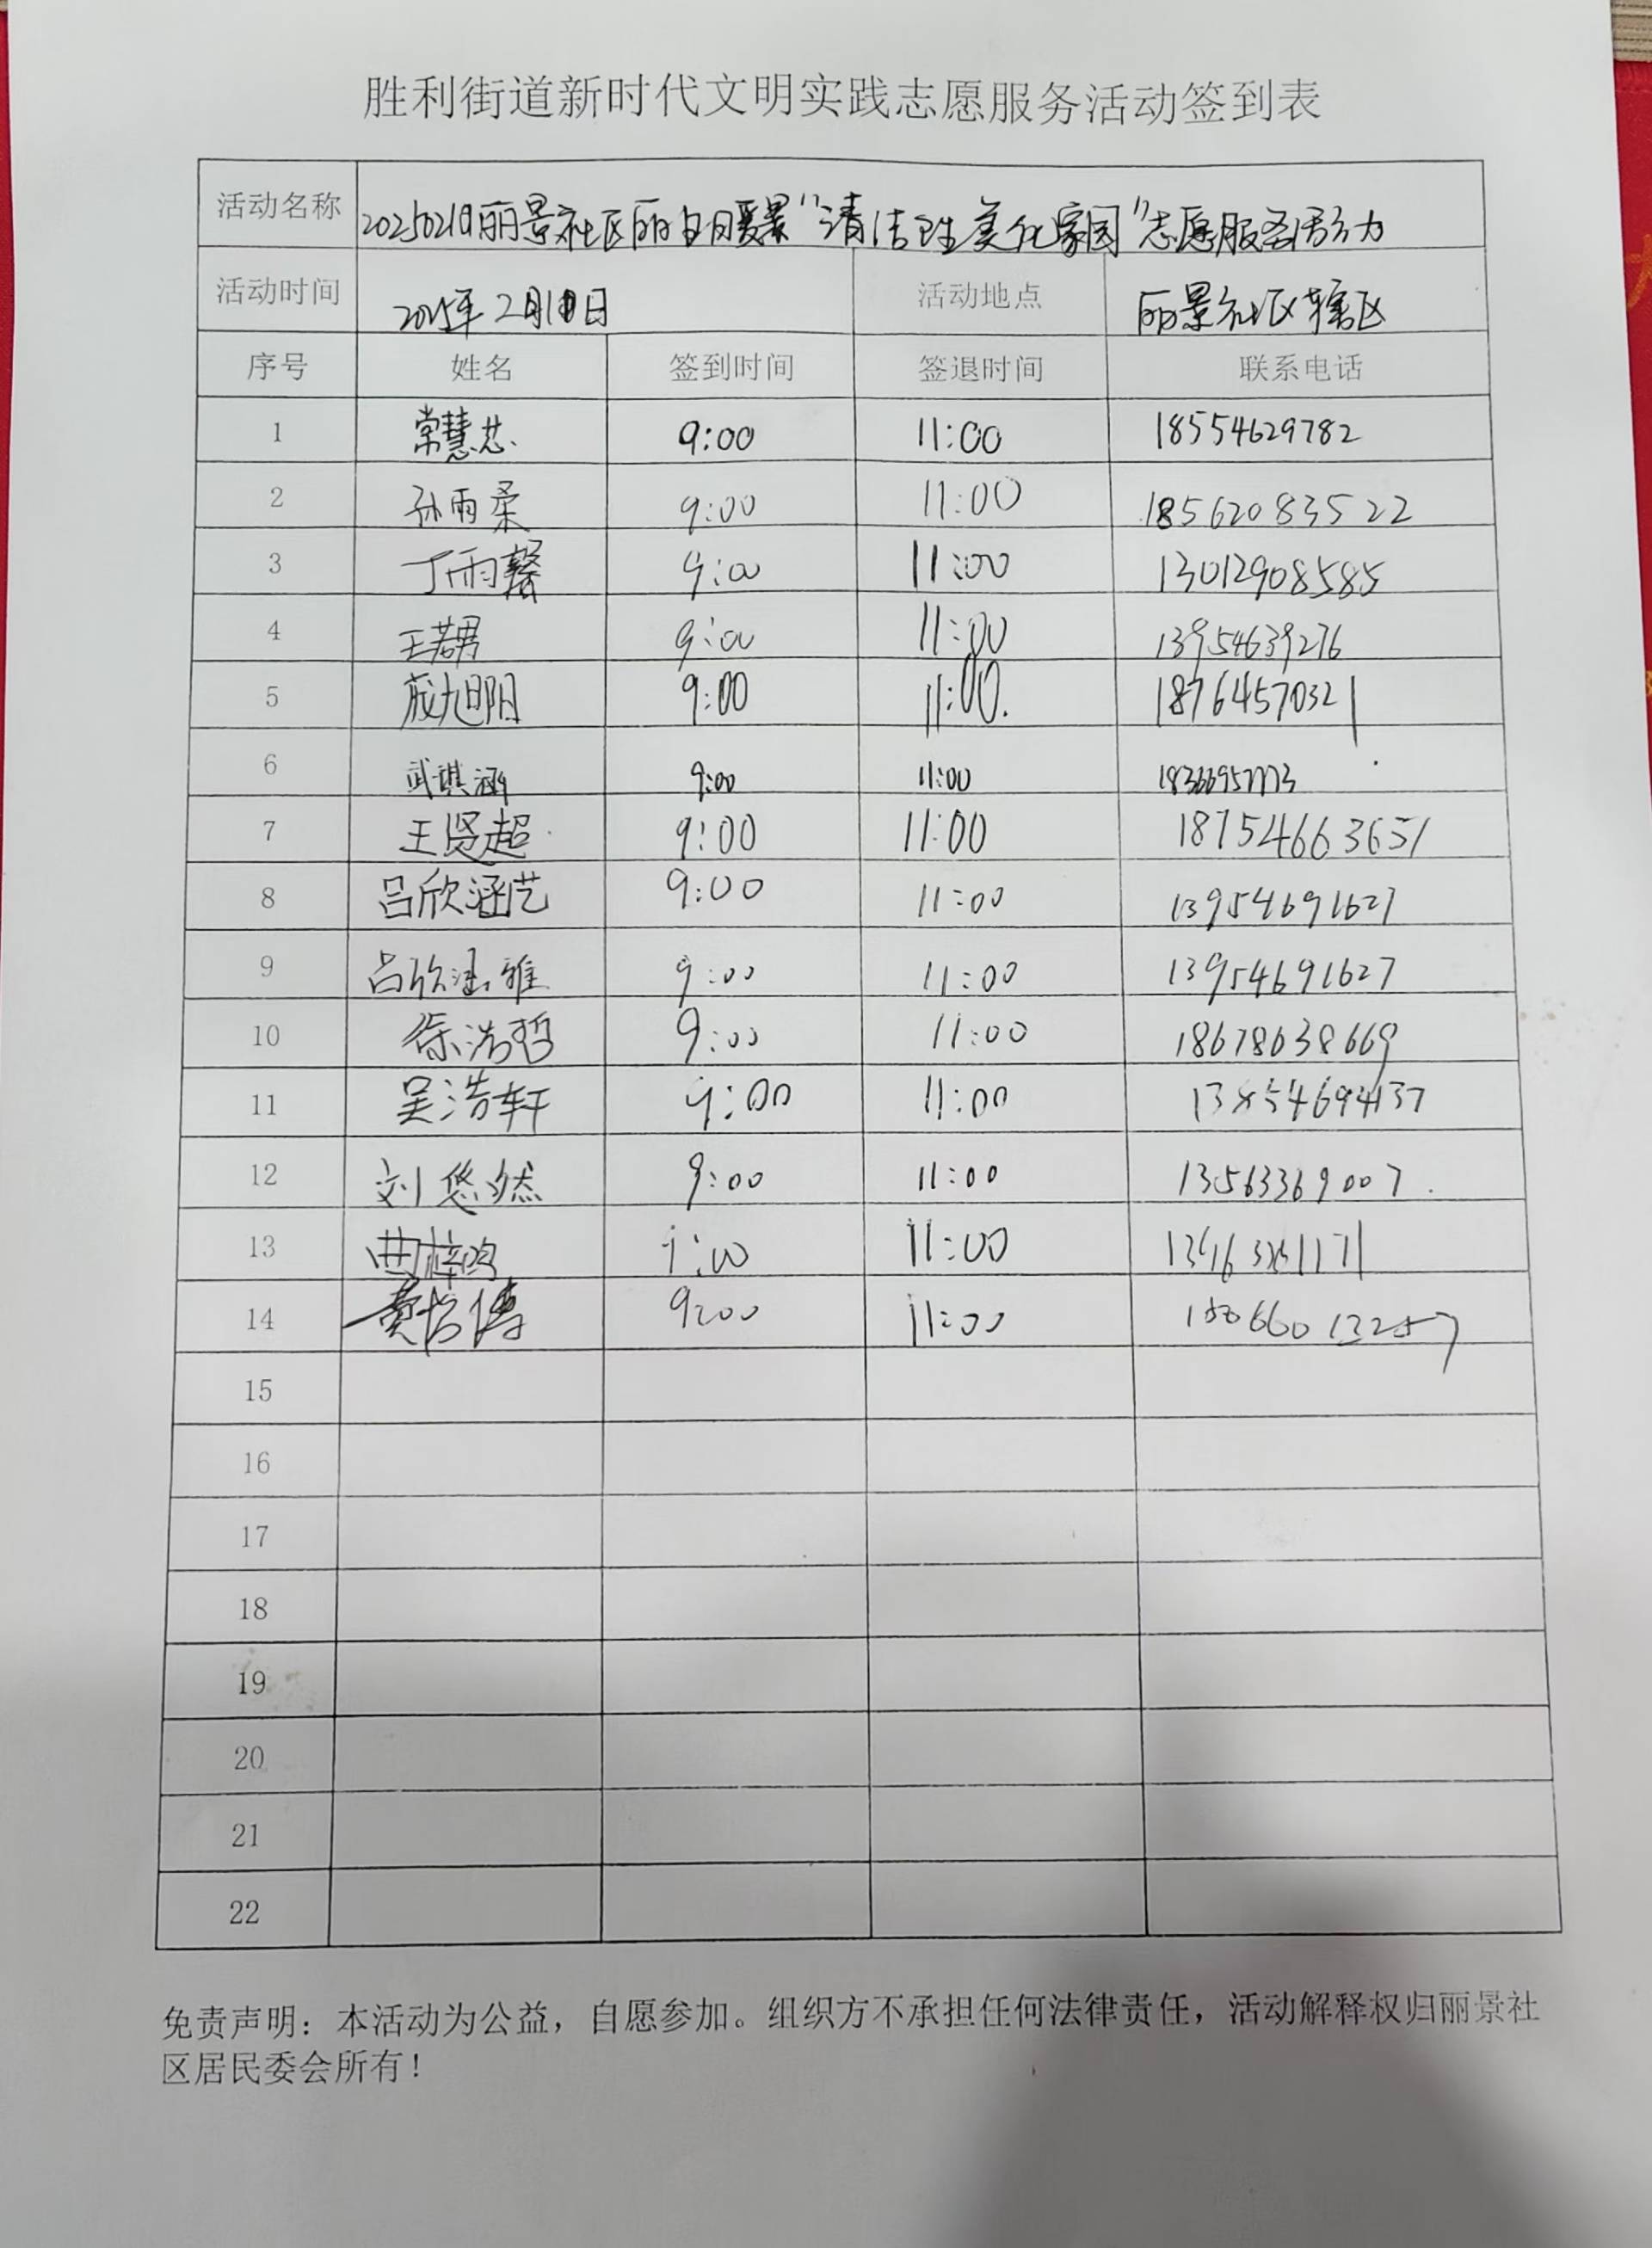 胜利街道新时代文明实践志愿服务活动签到表
活动名称 丽景社区 "清洁 美化家园"志愿服务活动
活动时间 2025年2月 日 活动地点 丽景社区辖区
序号 姓名 签到时间 签退时间 联系电话
1 常慧芯 9:00 11:00 18554629782
2 孙雨柔 9:00 11:00 18562083522
3 丁雨馨 9:00 11:00 13012908585
4 王若男 9:00 11:00 13954639276
5 旭阳 9:00 11:00. 18764570321
6 武琪涵 9:00 11:00
7 王贤超 9:00 11:00 18754663651
8 吕欣涵艺 9:00 11:00 13954691627
9 吕欣涵雅 9:00 11:00 13954691627
10 徐浩哲 9:00 11:00 18678638669
11 吴浩轩 9:00 11:00 13854694137
12 刘悠然 9:00 11:00 13563369007
13 曲梓鸣 9:00 11:00
14 9:00 11:00
15
16
17
18
19
20
21
22
免责声明：本活动为公益，自愿参加。组织方不承担任何法律责任，活动解释权归丽景社
区居民委会所有！